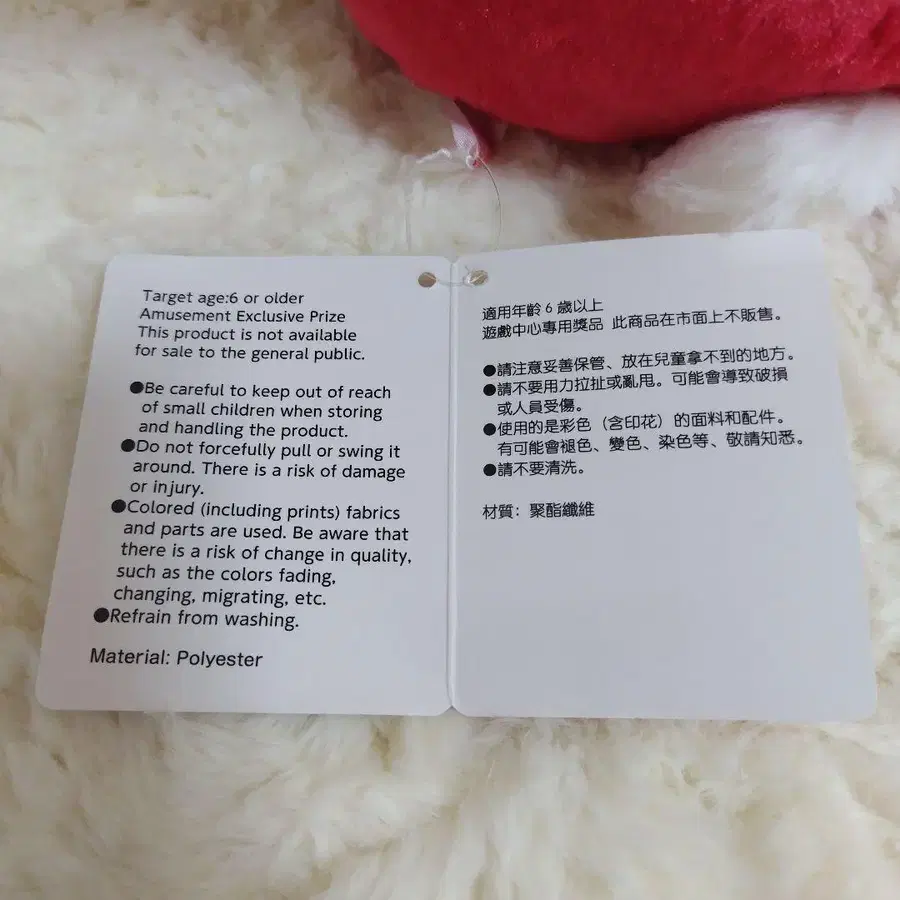 Target age:6 or older
Amusement Exclusive Prize
This product is not available
for sale to the general public.
●Be careful to keep out of reach
of small children when storing
and handling the product.
●Do not forcefully pull or swing it
around. There is a risk of damage
or injury.
●Colored (including prints) fabrics
and parts are used. Be aware that
there is a risk of change in quality,
such as the colors fading,
changing, migrating, etc.
●Refrain from washing.
Material: Polyester
適用年齡 6 歲以上
遊戲中心專用獎品 此商品在市面上不販售。
●請注意妥善保管、放在兒童拿不到的地方。
●請不要用力拉扯或亂甩。可能會導致破損
或人員受傷。
●使用的是彩色（含印花）的面料和配件。
有可能會褪色、變色、染色等、敬請知悉。
●請不要清洗。
材質：聚酯纖維